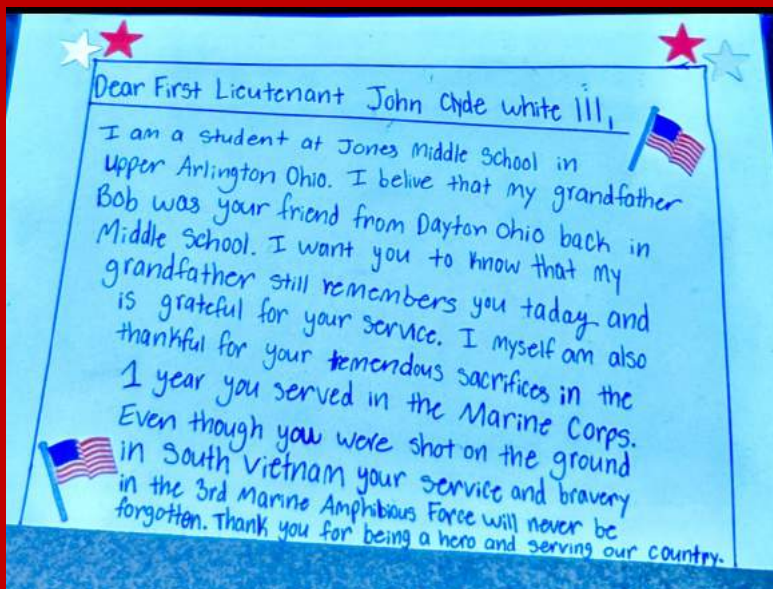 Dear First Lieutenant John Clyde White III,
I am a student at Jones Middle School in
Upper Arlington Ohio. I belive that my grandfather
Bob was your friend from Dayton Ohio back in
Middle School. I want you to know that my
grandfather still remembers you taday and
is grateful for your service. I myself am also
thankful for your temendous sacrifices in the
1 year you served in the Marine Corps.
Even though you were shot on the ground
in South Vietnam your service and bravery
in the 3rd Marine Amphibious Force will never be
forgotten. Thank you for being a hero and serving our country.